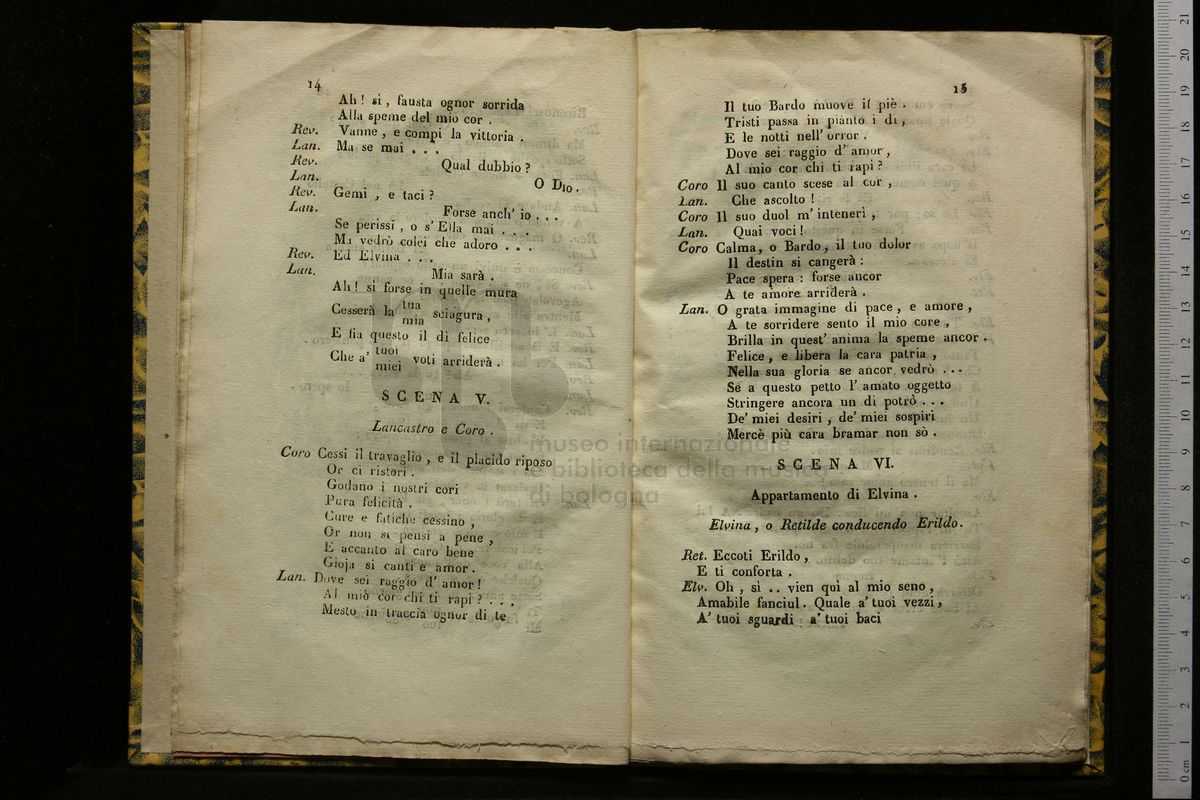 14
Ah! sì, fausta ognor sorrida
Alla speme del mio cor.
Rev. Vanne, e compi la vittoria.
Lan. Ma se mai . . .
Rev. Qual dubbio?
Lan. O Dio.
Rev. Gemi, e taci?
Lan. Forse anch' io . . .
Se perissi, o s' Ella mai . . .
Ma vedrò colei che adoro . . .
Rev. Ed Elvina . . .
Lan. Mia sarà.
Ah! sì forse in quelle mura
Cesserà la tua
mia sciagura,
E fia questo il dì felice
Che a' tuoi
miei voti arriderà.
SCENA V.
Lancastro e Coro.
Coro Cessi il travaglio, e il placido riposo
Or ci ristori.
Godano i nostri cori
Pura felicità.
Cure e fatiche cessino,
Or non si pensi a pene,
E accanto al caro bene
Gioja si canti e amor.
Lan. Dove sei raggio d' amor!
Al mio cor chi ti rapì? . . .
Mesto in traccia ognor di te
15
Il tuo Bardo muove il piè.
Tristi passa in pianto i dì,
E le notti nell' orror.
Dove sei raggio d' amor,
Al mio cor chi ti rapì?
Coro Il suo canto scese al cor,
Lan. Che ascolto!
Coro Il suo duol m' intenerì,
Lan. Quai voci!
Coro Calma, o Bardo, il tuo dolor
Il destin si cangerà:
Pace spera: forse ancor
A te amore arriderà.
Lan. O grata immagine di pace, e amore,
A te sorridere sento il mio core,
Brilla in quest' anima la speme ancor.
Felice, e libera la cara patria,
Nella sua gloria se ancor vedrò ...
Se a questo petto l' amato oggetto
Stringere ancora un dì potrò . . .
De' miei desiri, de' miei sospiri
Mercè più cara bramar non sò.
SCENA VI.
Appartamento di Elvina.
Elvina, o Retilde conducendo Erildo.
Ret. Eccoti Erildo,
E ti conforta.
Elv. Oh, sì .. vien quì al mio seno,
Amabile fanciul. Quale a' tuoi vezzi,
A' tuoi sguardi a' tuoi baci
museo internazionale
e biblioteca della musica
di bologna